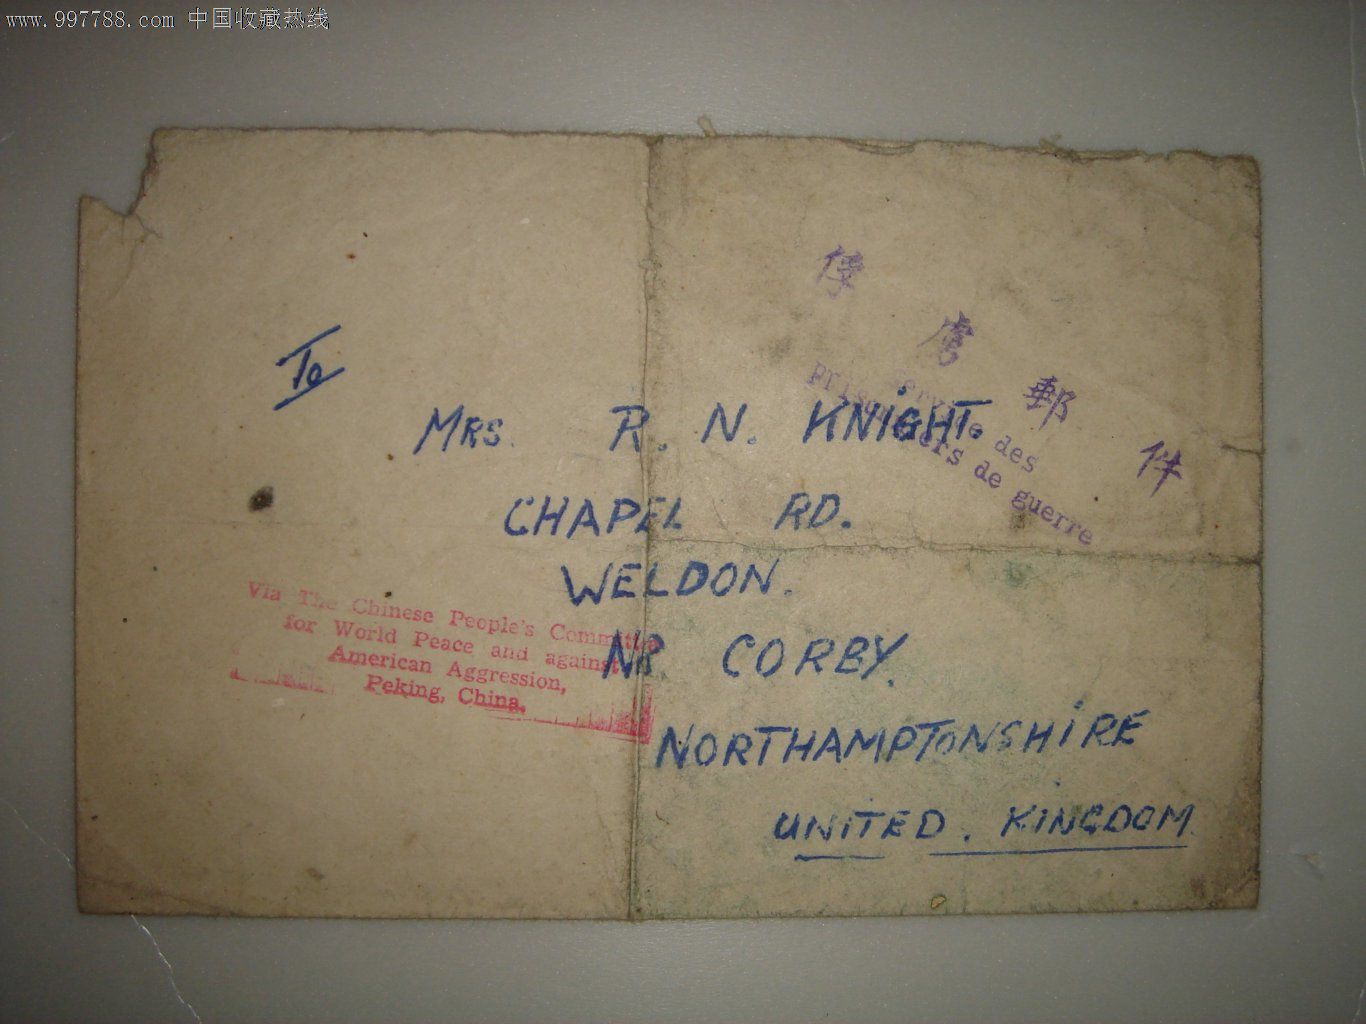 www.997788.com 中国收藏热线
俘虜郵件
Service des
Prisonniers de guerre
To
MRS. R. N. KNIGHT.
CHAPEL RD.
WELDON.
NR. CORBY.
NORTHAMPTONSHIRE
UNITED. KINGDOM
Via The Chinese People's Committee
for World Peace and against
American Aggression,
Peking, China.